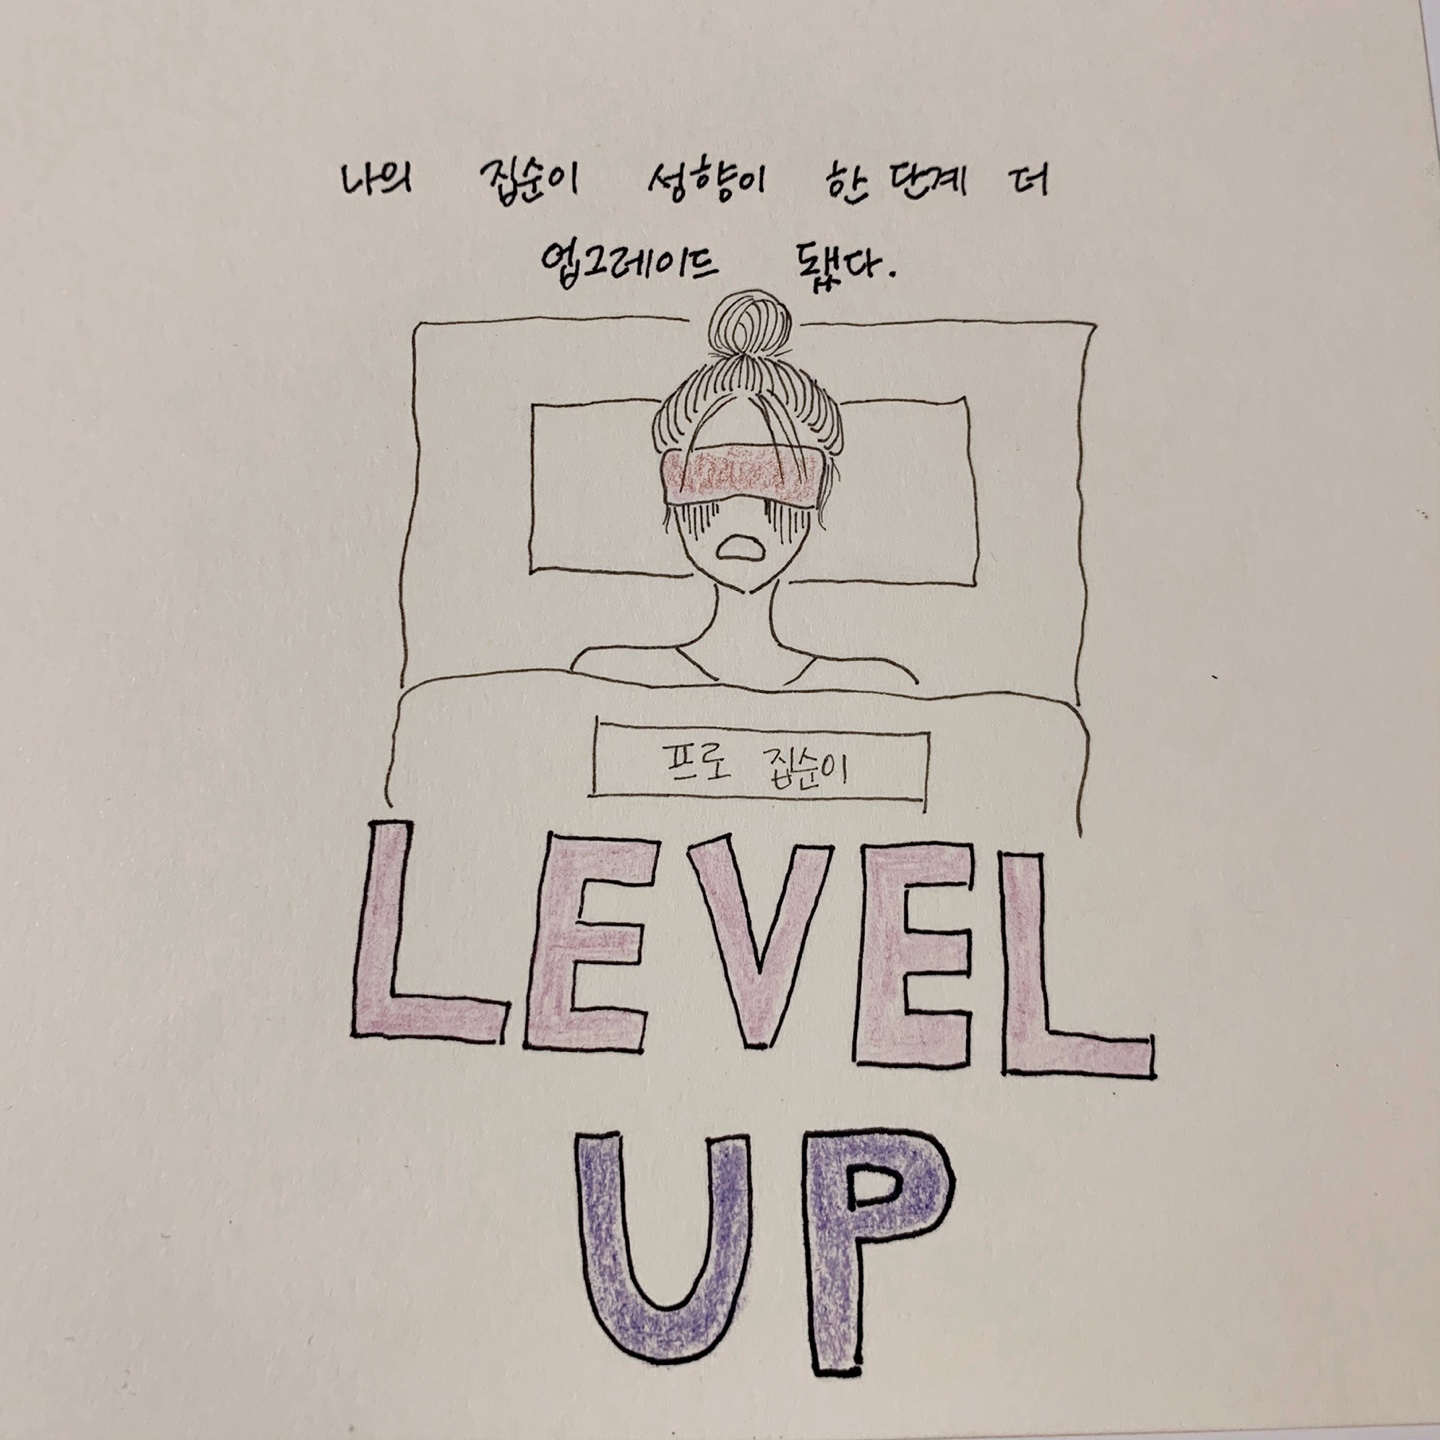 나의 집순이 성향이 한 단계 더
업그레이드 됐다.
프로 집순이
LEVEL
UP